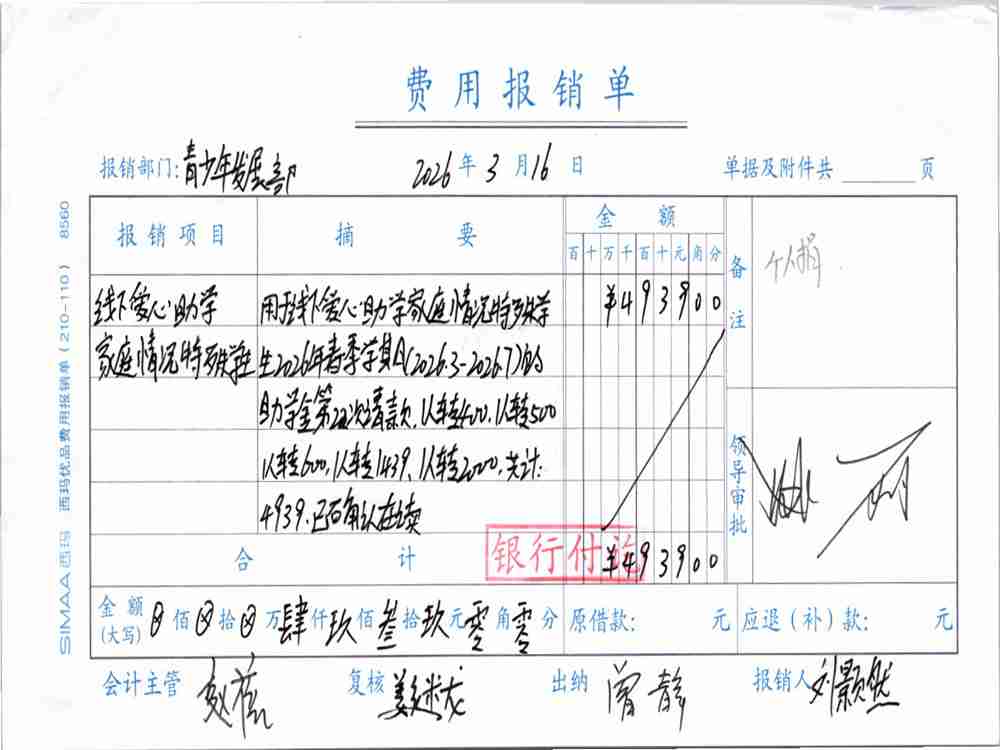 费用报销单
报销部门:青少年发展部 2026年3月16日 单据及附件共 页
报销项目 摘要 金额 备注
百十万千百十元角分
个人捐
线下爱心助学 用于线下爱心助学家庭情况特殊学 ¥493900
家庭情况特殊学生 生2026年春季学期(2026.3-2026.7)的
助学金第二次拨款,1人转400,1人转500
1人转600,1人转1439,1人转2000,共计:
4939.已确认在读
领导审批
合计 银行付讫 ¥493900
金额(大写) 佰 拾 万肆仟玖佰叁拾玖元零角零分 原借款: 元 应退(补)款: 元
会计主管 复核 出纳 曾静 报销人 刘颢然
SIMAA西玛 西玛优品费用报销单(210-110) 8560